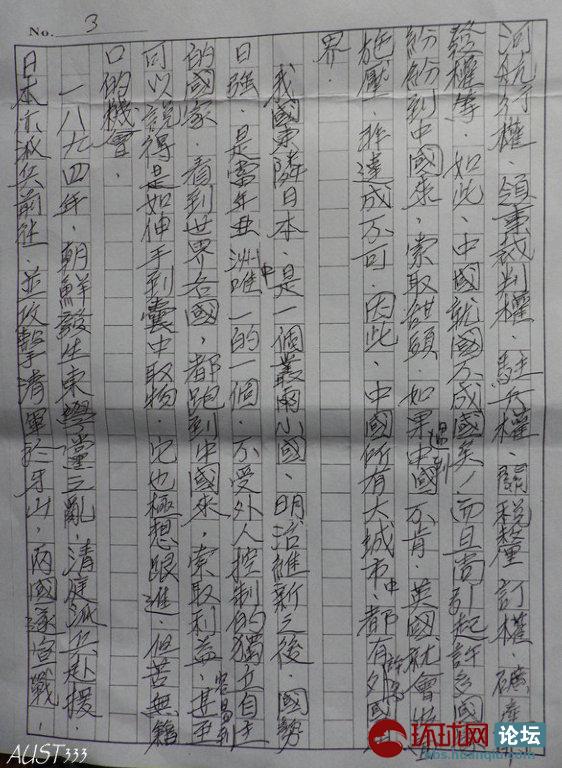 No. 3
河航行權．領事裁判權．駐兵權．關稅釐訂權．礦產開
發權等．如此．中國就國不成國矣！而且尚引起許多國家
紛紛到中國來．索取甜頭．如果遇到中國不肯．英國就會
施壓．非達成不可．因此．中國所有大城市中．都有許多外國
界．
我國東隣日本．是一個叢爾小國．明治維新之後．國勢
日强．是當年亞洲中唯一的一個．不受外人控制的獨立自主
的國家．看到世界各國，都跑到中國來，索取利益．甚至
可以說得是如伸手到囊中取物容易．它也極想跟進．但苦無籍
口的機會．
一八九四年．朝鮮發生東學黨之亂．清廷派兵赴援．
日本亦派兵前往．並攻擊清軍於牙山．兩國遂宣戰．
AUST333
环球网 论坛
bbs.huanqiu.com